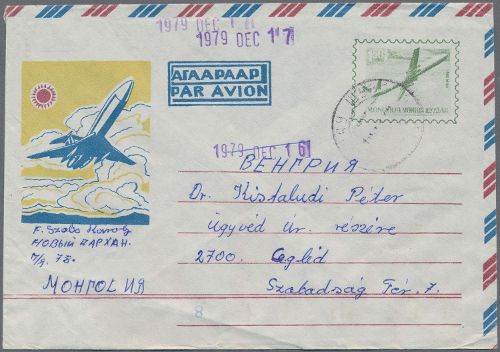 1979 DEC 1
1979 DEC 17
АГААРААР
PAR AVION
1979 DEC 16
ВЕНГРИЯ
Dr. Kisfaludi Péter
ügyvéd úr. részére
2700. Cegléd
Szabadság Tér. 7.
F. Szabo
НОВЫЙ ДАРХАН.
П/Я. 78.
МОНГОЛИЯ
8